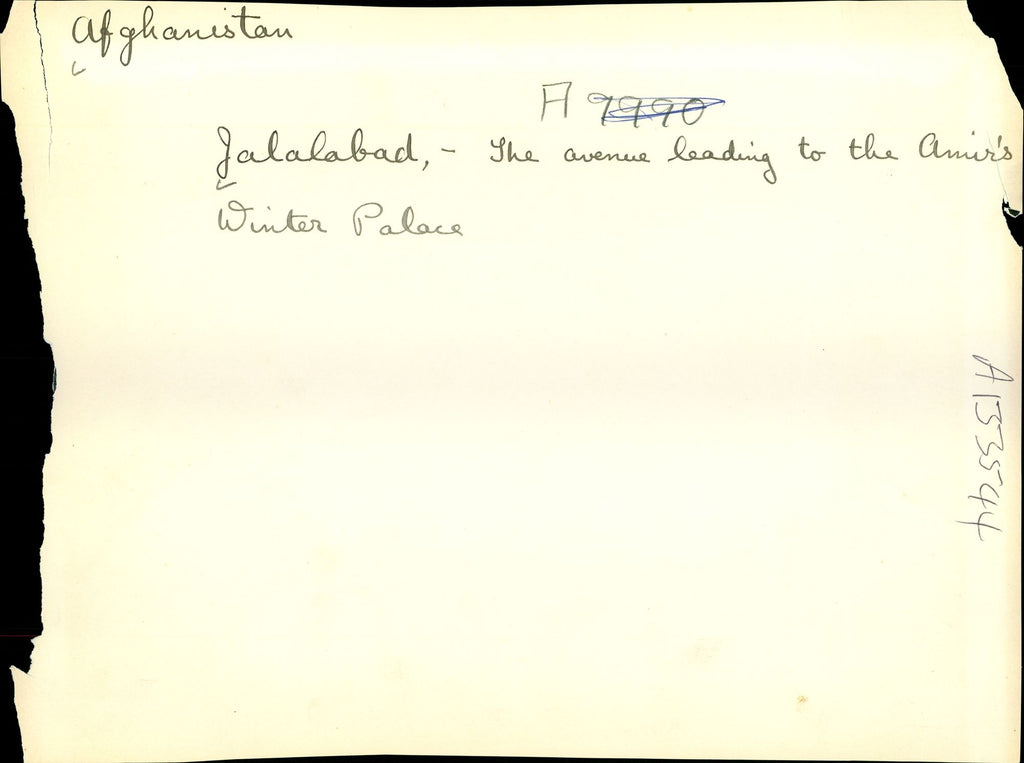 Afghanistan
A 9990
Jalalabad, - The avenue leading to the Amir's
Winter Palace
A 153544